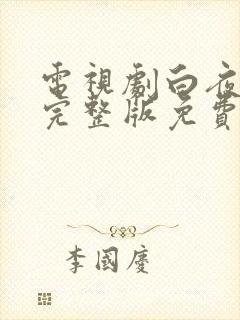 電視劇白夜
完整版免費
李國慶